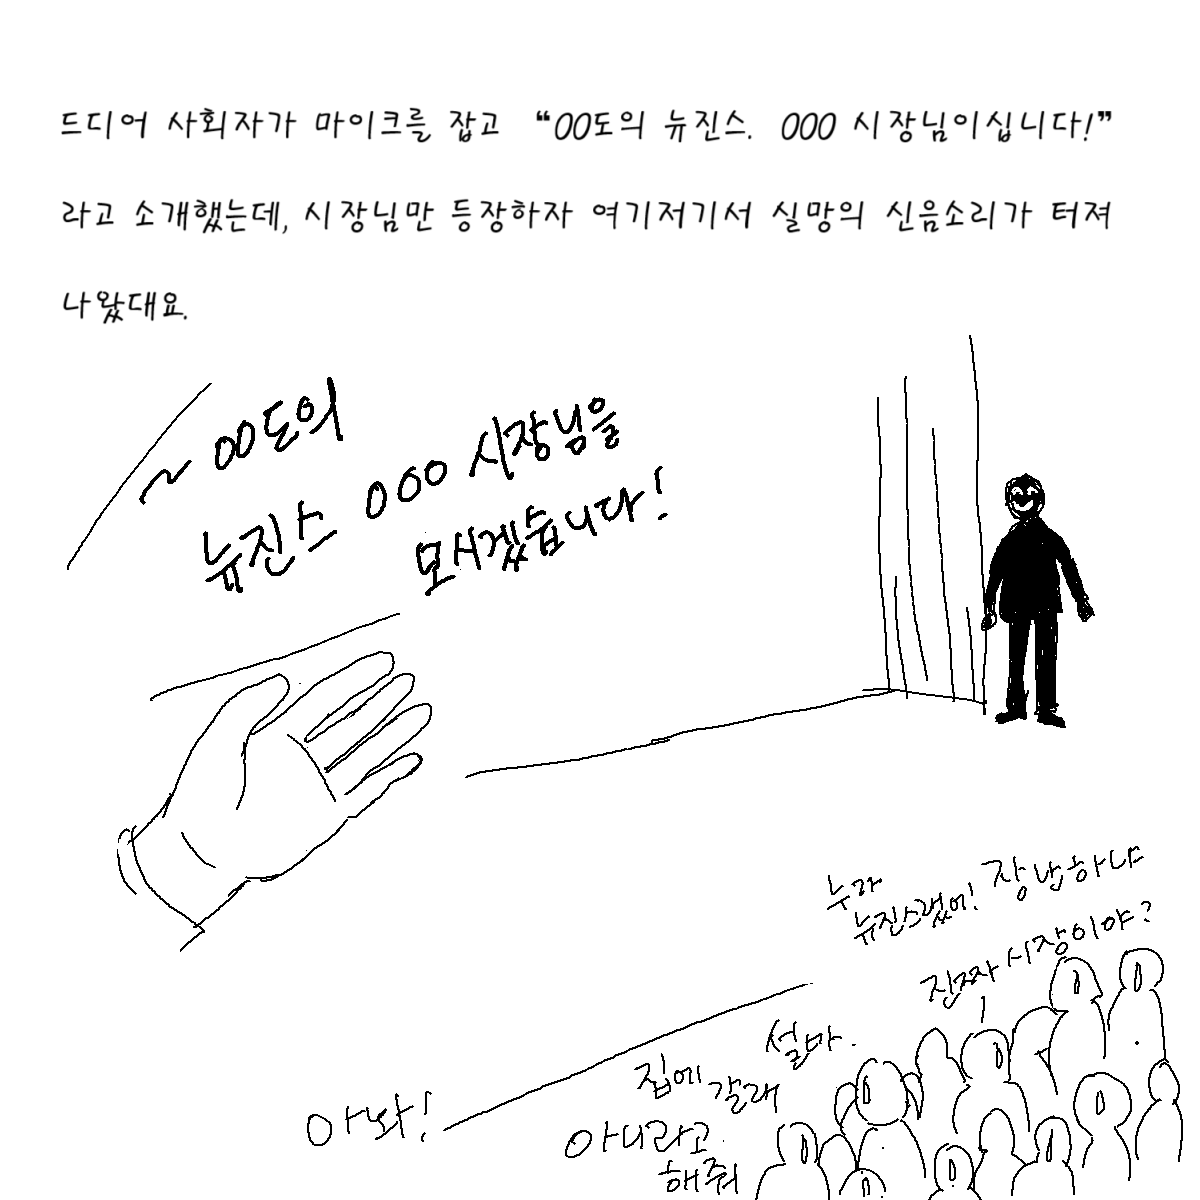 드디어 사회자가 마이크를 잡고 “00도의 뉴진스. 000 시장님이십니다!”
라고 소개했는데, 시장님만 등장하자 여기저기서 실망의 신음소리가 터져
나왔대요.
~ 00도의
뉴진스 000 시장님을
모시겠습니다!
누가
뉴진스랬어! 장난하냐
진짜 시장이야?
설마.
집에
갈래
아놔!
아니라고
해줘